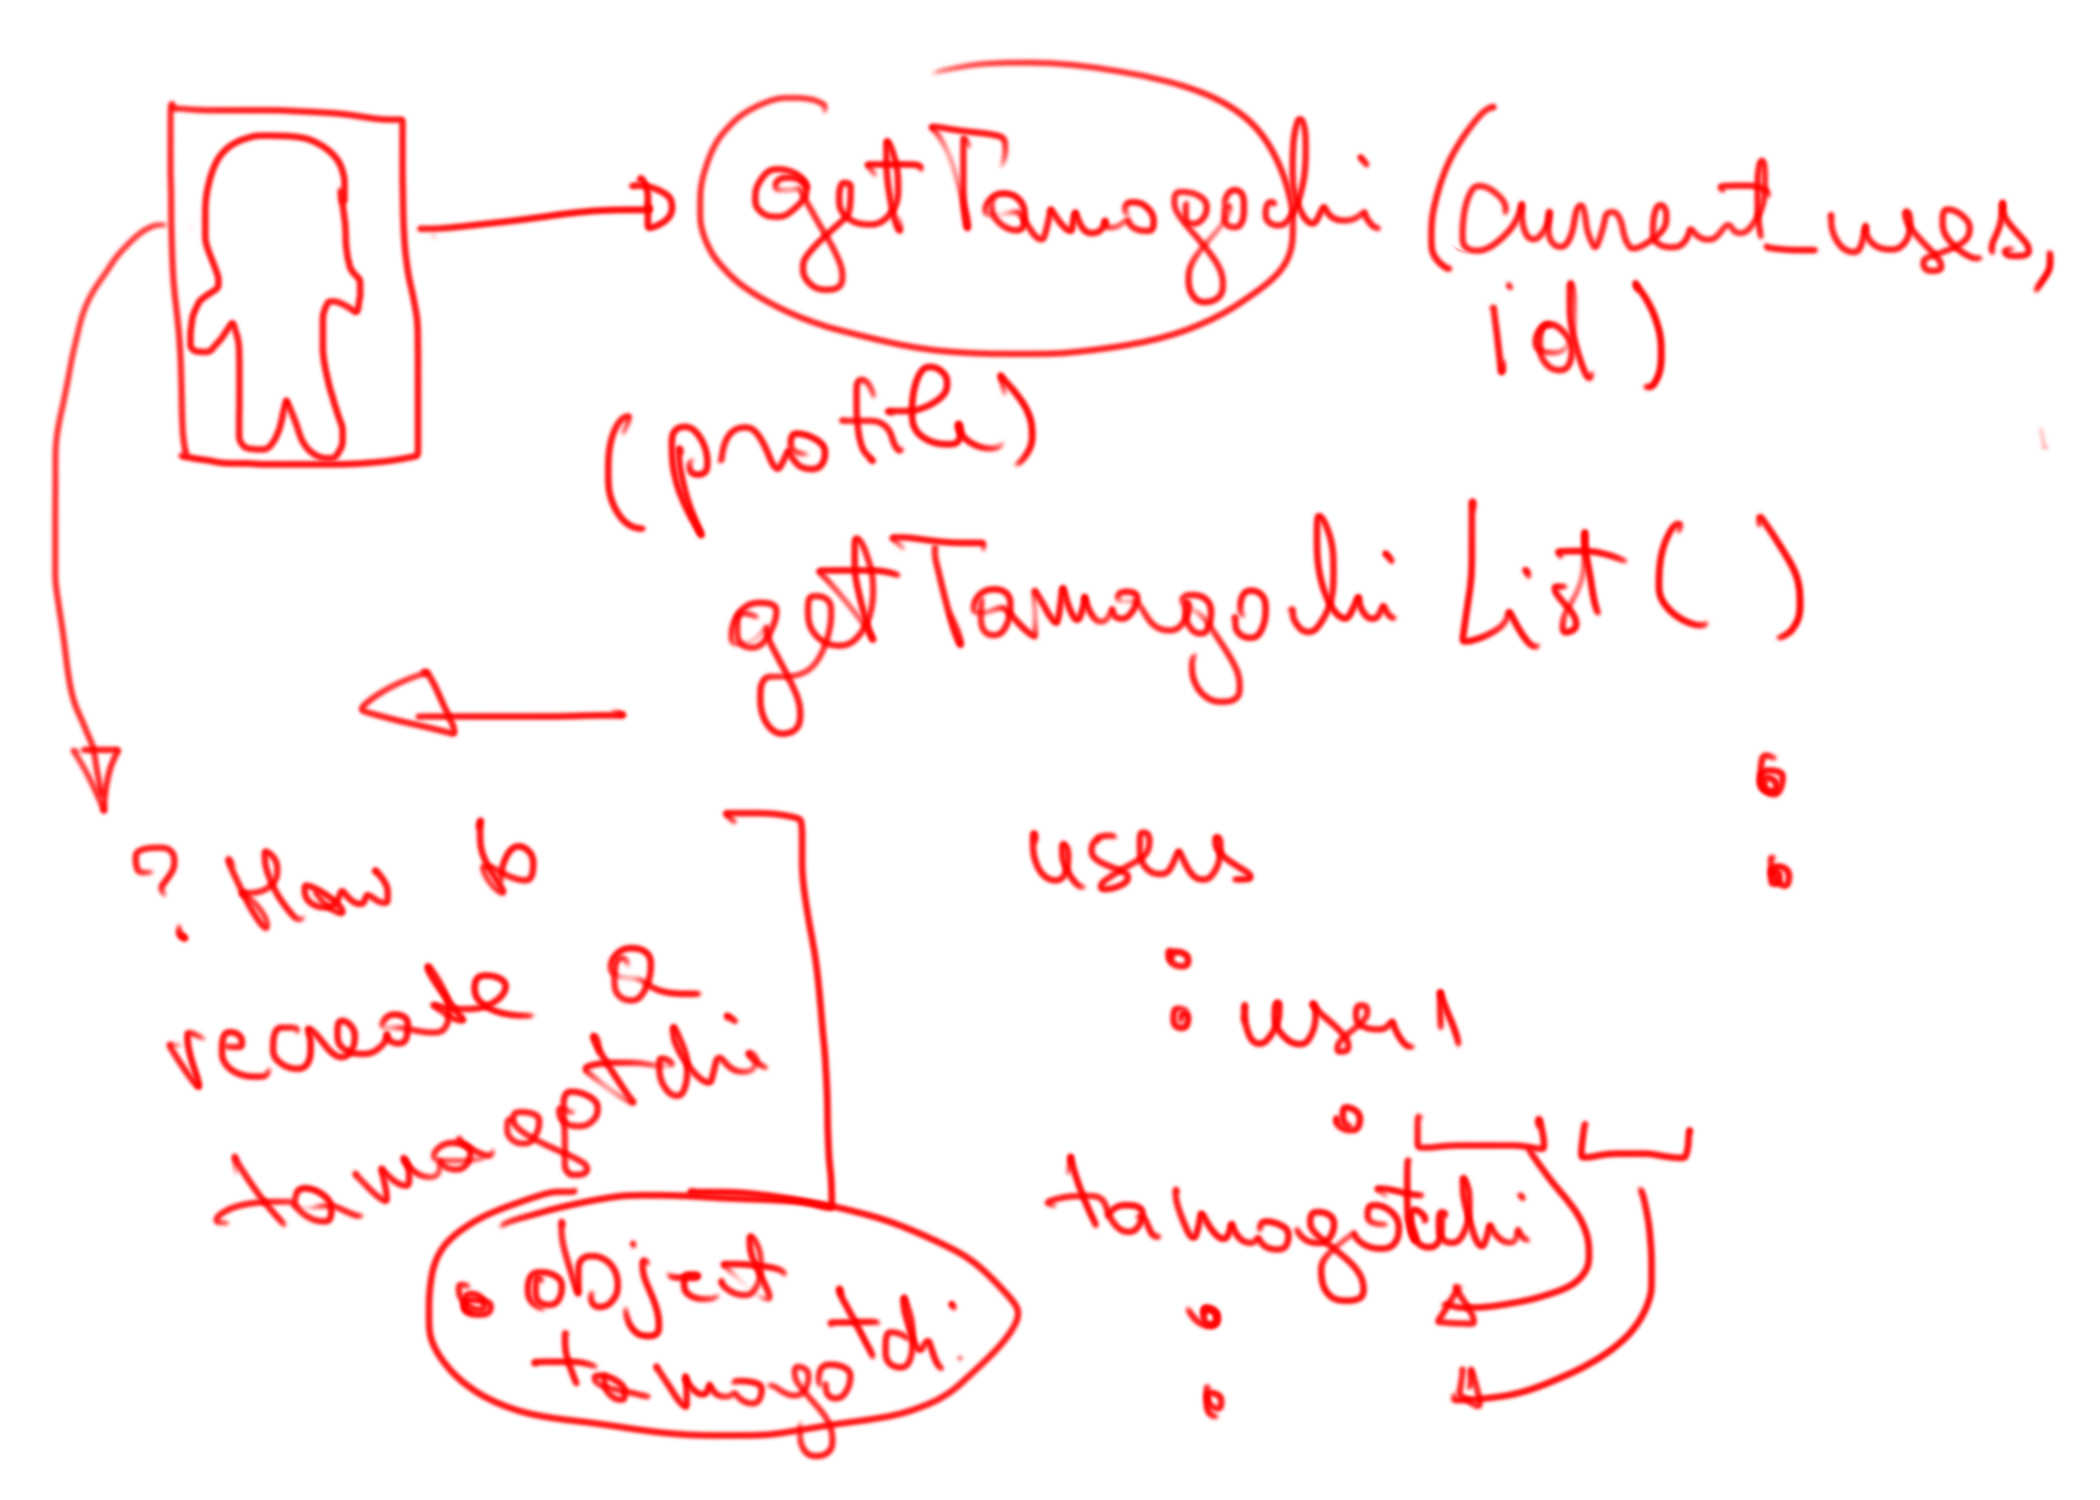 getTamagochi (current_user,
id)
(profile)
getTamagochi List ( )
? How to
recreate a
tamagotchi
object
tamagotchi
users
user 1
tamagotchi